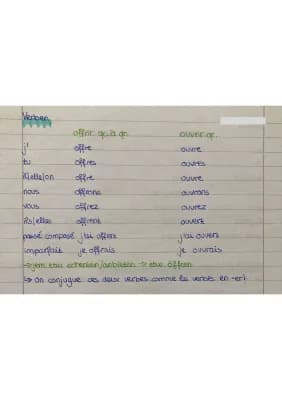 Verben
offrir qc. à qn. ouvrir qc.
j' offre ouvre
tu offres ouvres
il/elle/on offre ouvre
nous offrons ouvrons
vous offrez ouvrez
ils/elles offrent ouvrent
passé composé j'ai offert j'ai ouvert
imparfait je offrais je ouvrais
→ jem. etw. schenken/anbieten → etw. öffnen
↳ On conjugue ces deux verbes comme les verbes en -er!